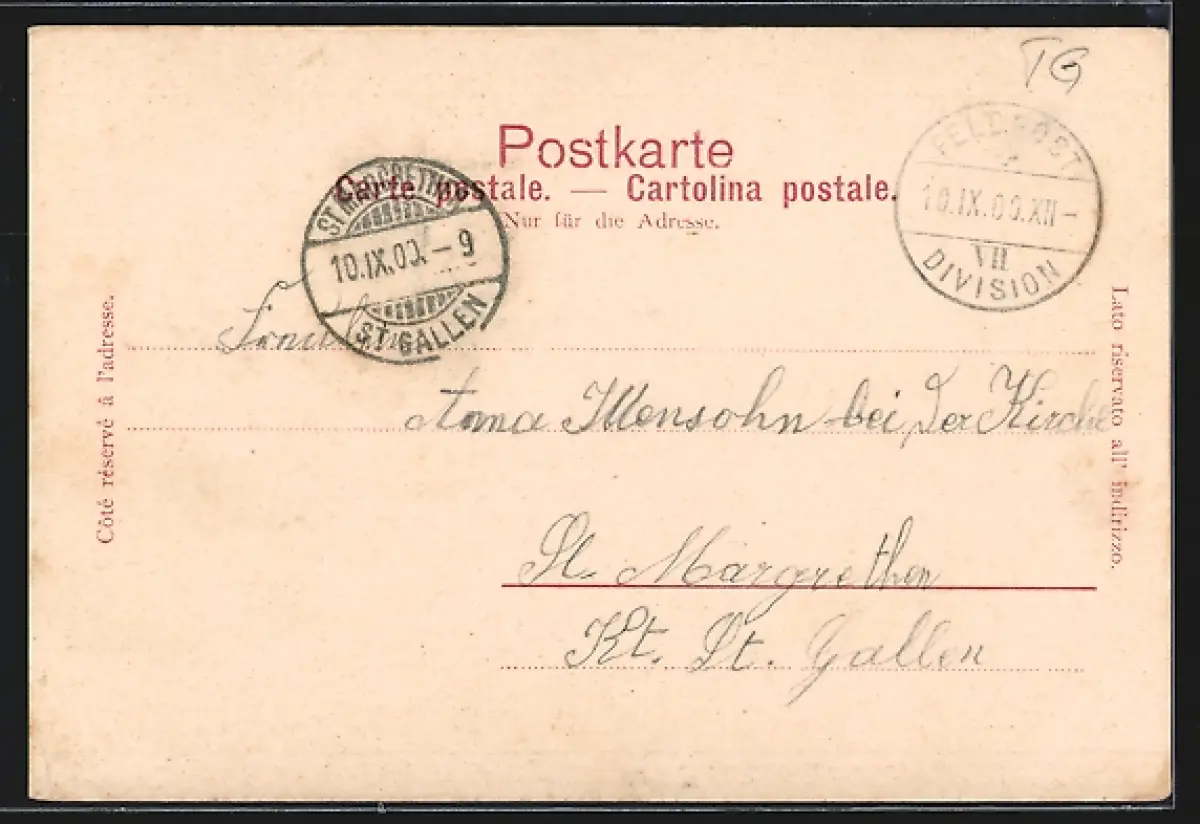 TG
Postkarte
Carte postale. — Cartolina postale.
Nur für die Adresse.
FELDPOST
10.IX.00.XII-
VII
DIVISION
10.IX.00.-9
ST. GALLEN
Côté réservé à l'adresse.
Lato riservato all' indirizzo.
Anna Illensohn bei der Kirche
St. Margrethen
Kt. St. Gallen